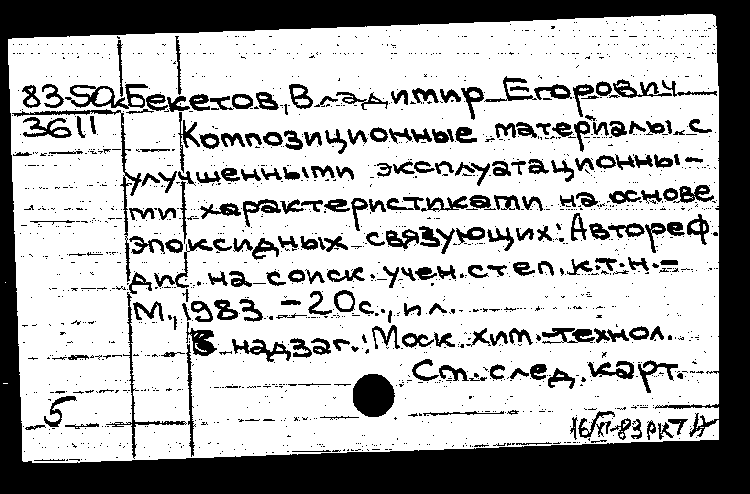 83-50к Бекетов, Владимир Егорович
3611
Композиционные материалы с
улучшенными эксплуатационны-
ми характеристиками на основе
эпоксидных связующих: Автореф.
дис. на соиск. учен. степ. к.т.н. –
М., 1983. – 20 с., ил.
В надзаг.: Моск. хим.-технол.
См. след. карт.
5